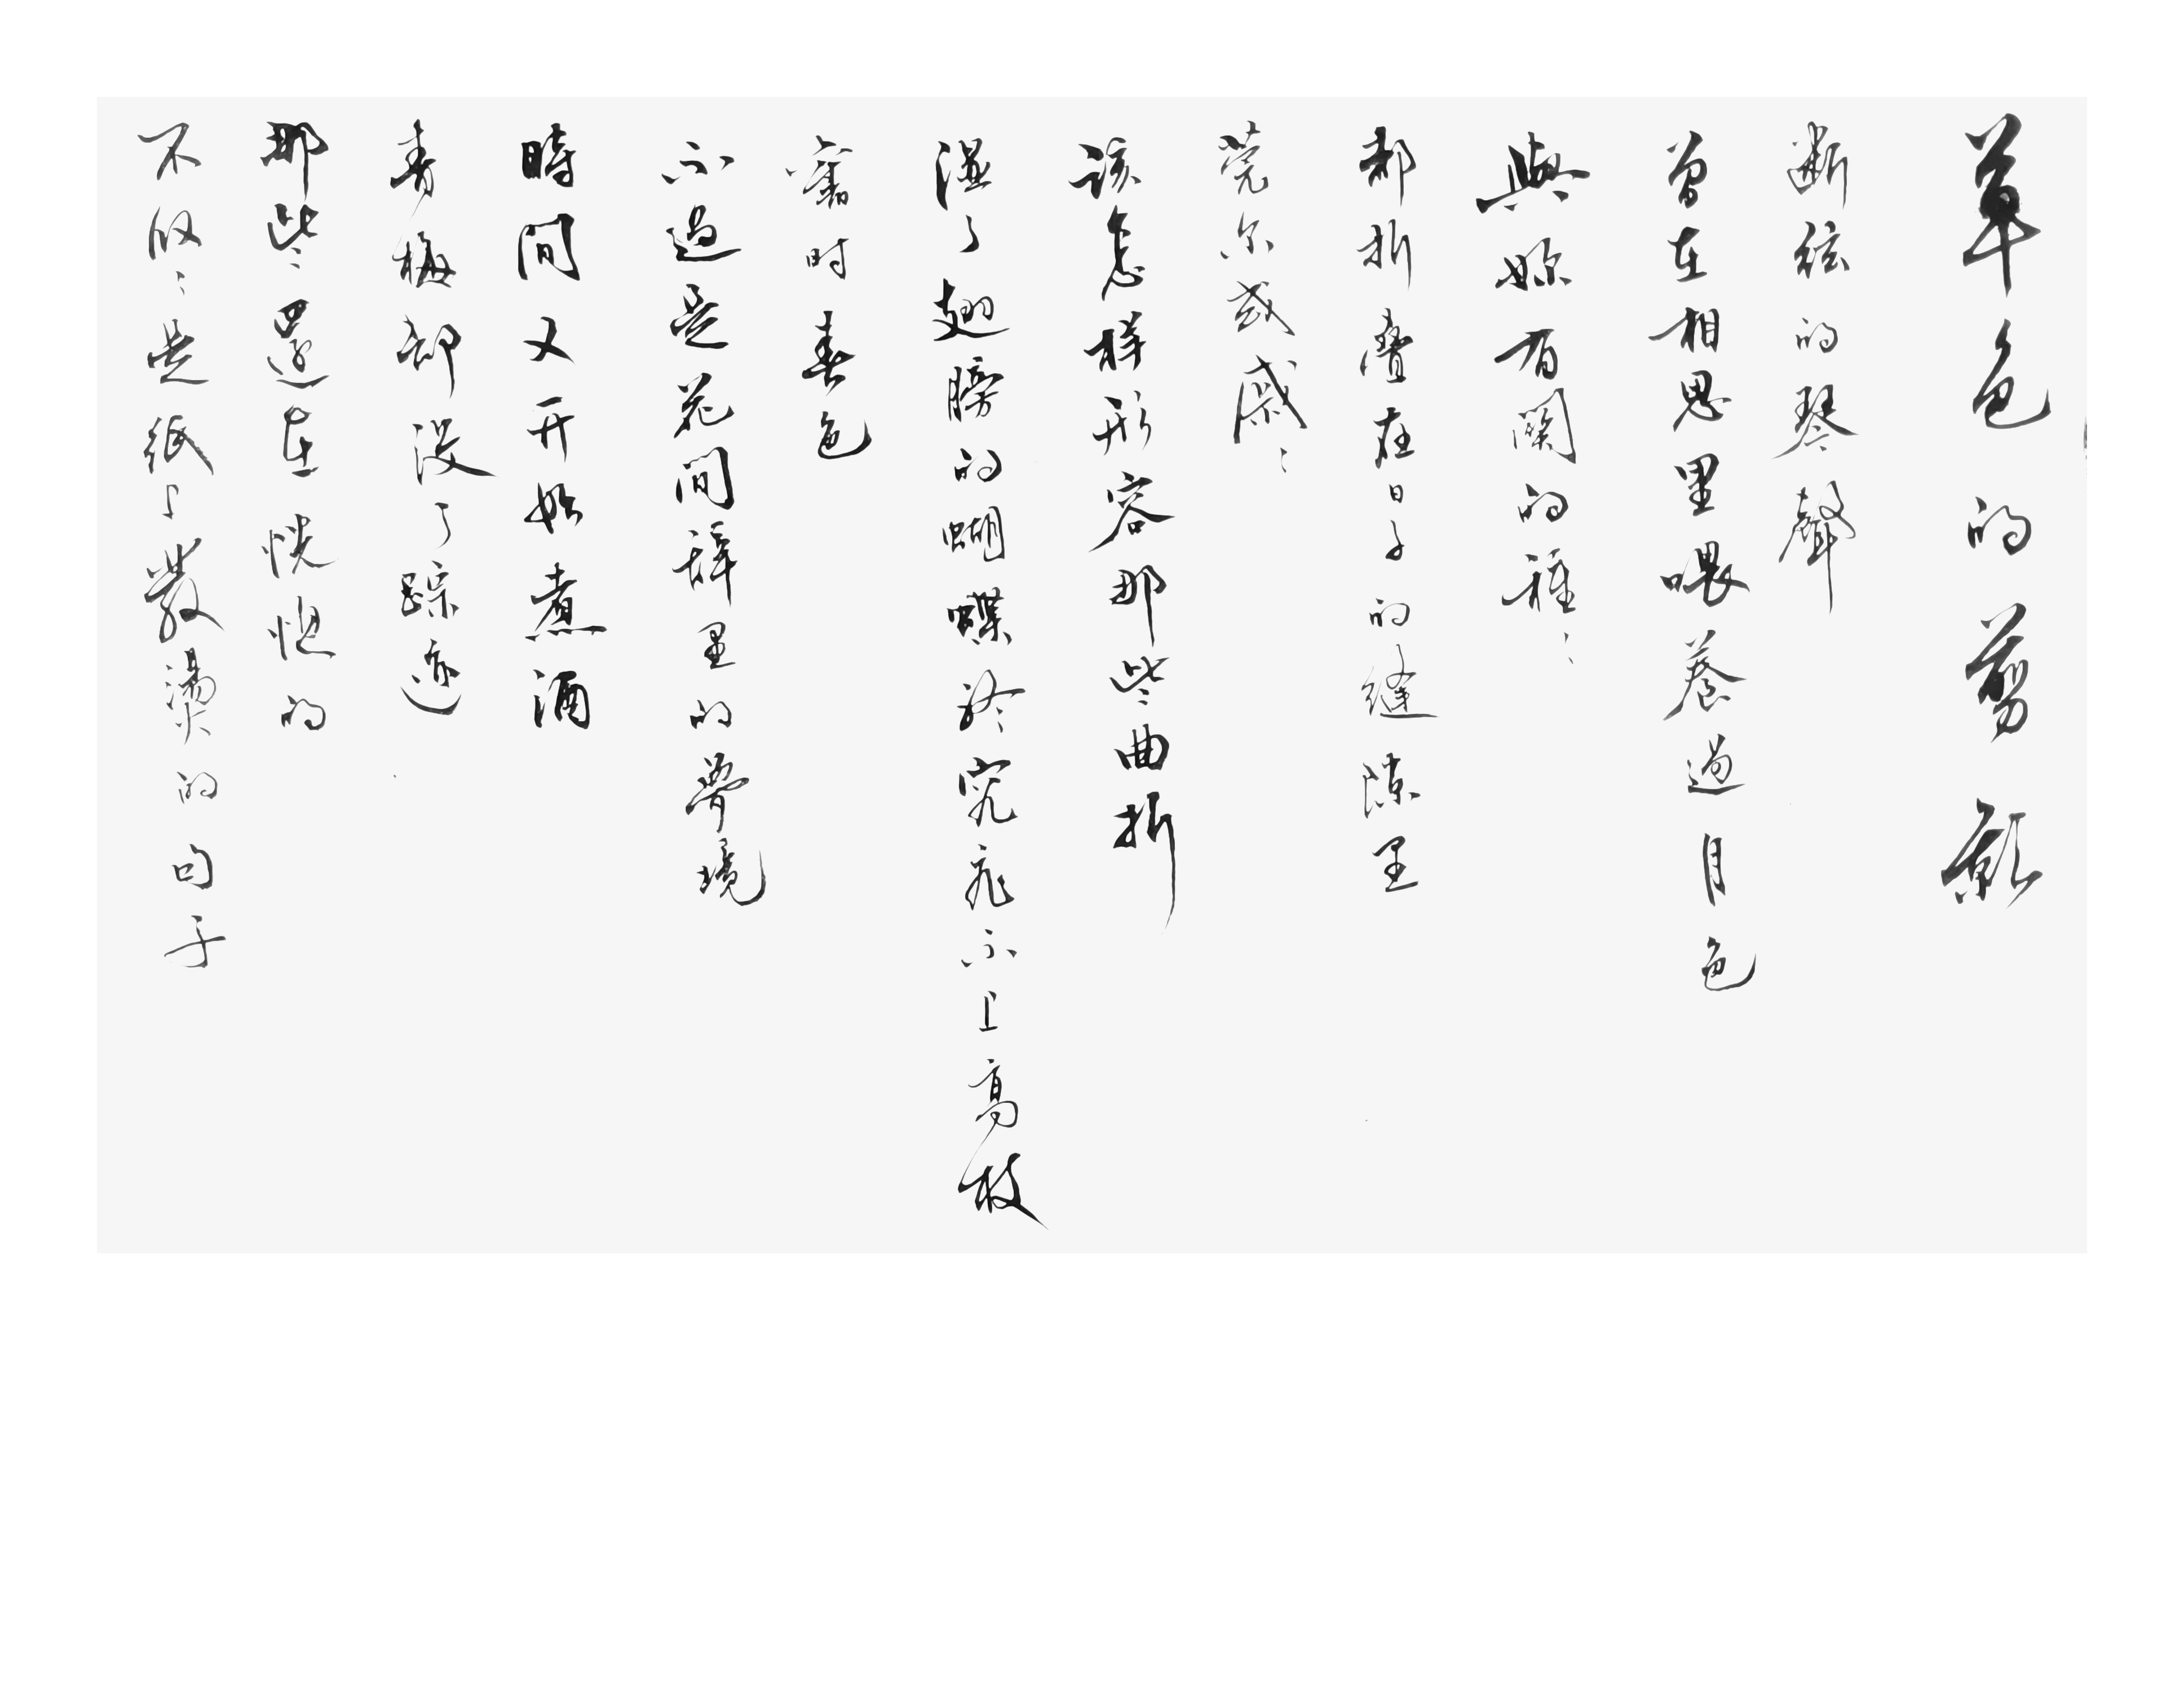 草色的剪影
斷絃的琴聲
曾在相思里喂養過月色
與妳有關的種種
都折疊在日子的縫隙里
莞尔或戚戚
該怎樣形容那些曲折
溼了翅膀的蝴蝶終究飛不上高枝
寤時春色
不過是花開禪里的夢境
時間又开始煮酒
青梅卻没了踪迹
那些還在恍惚的
不仅仅是紙上散潔的句子